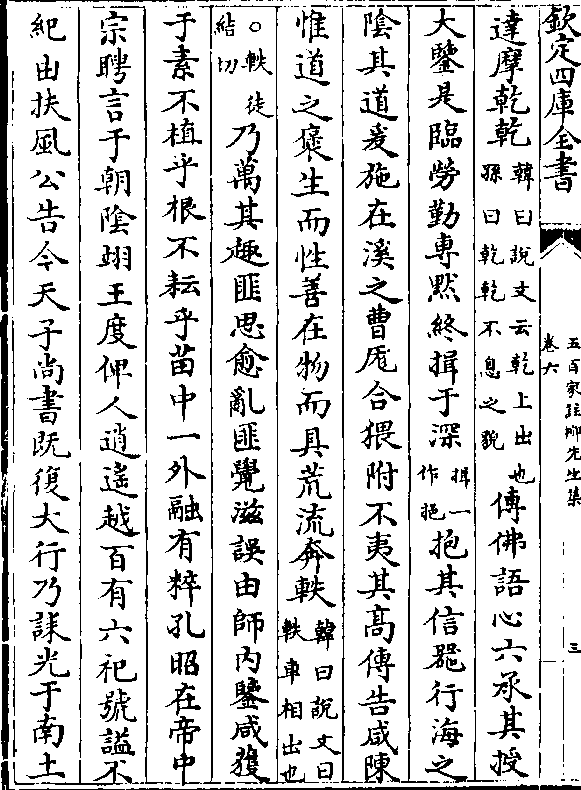 欽定四庫全書
五百家註柳先生集
卷六
三
達摩乾乾韓曰說文云乾上出也
孫曰乾乾不息之貌傳佛語心六承其授
大鑒是臨勞勤專黙終揖于深揖一
作挹抱其信器行海之
陰其道爰施在溪之曹厖合猥附不夷其髙傳告咸陳
惟道之襃生而性善在物而具荒流奔軼韓曰說文曰
軼車相出也
○軼徒
結切乃萬其趣匪思愈亂匪覺滋誤由師内鑒咸獲
于素不植乎根不耘乎苗中一外融有粹孔昭在帝中
宗聘言于朝隂翊王度俾人逍遥越百有六祀號諡不
紀由扶風公告今天子尚書既復大行乃誄光于南土